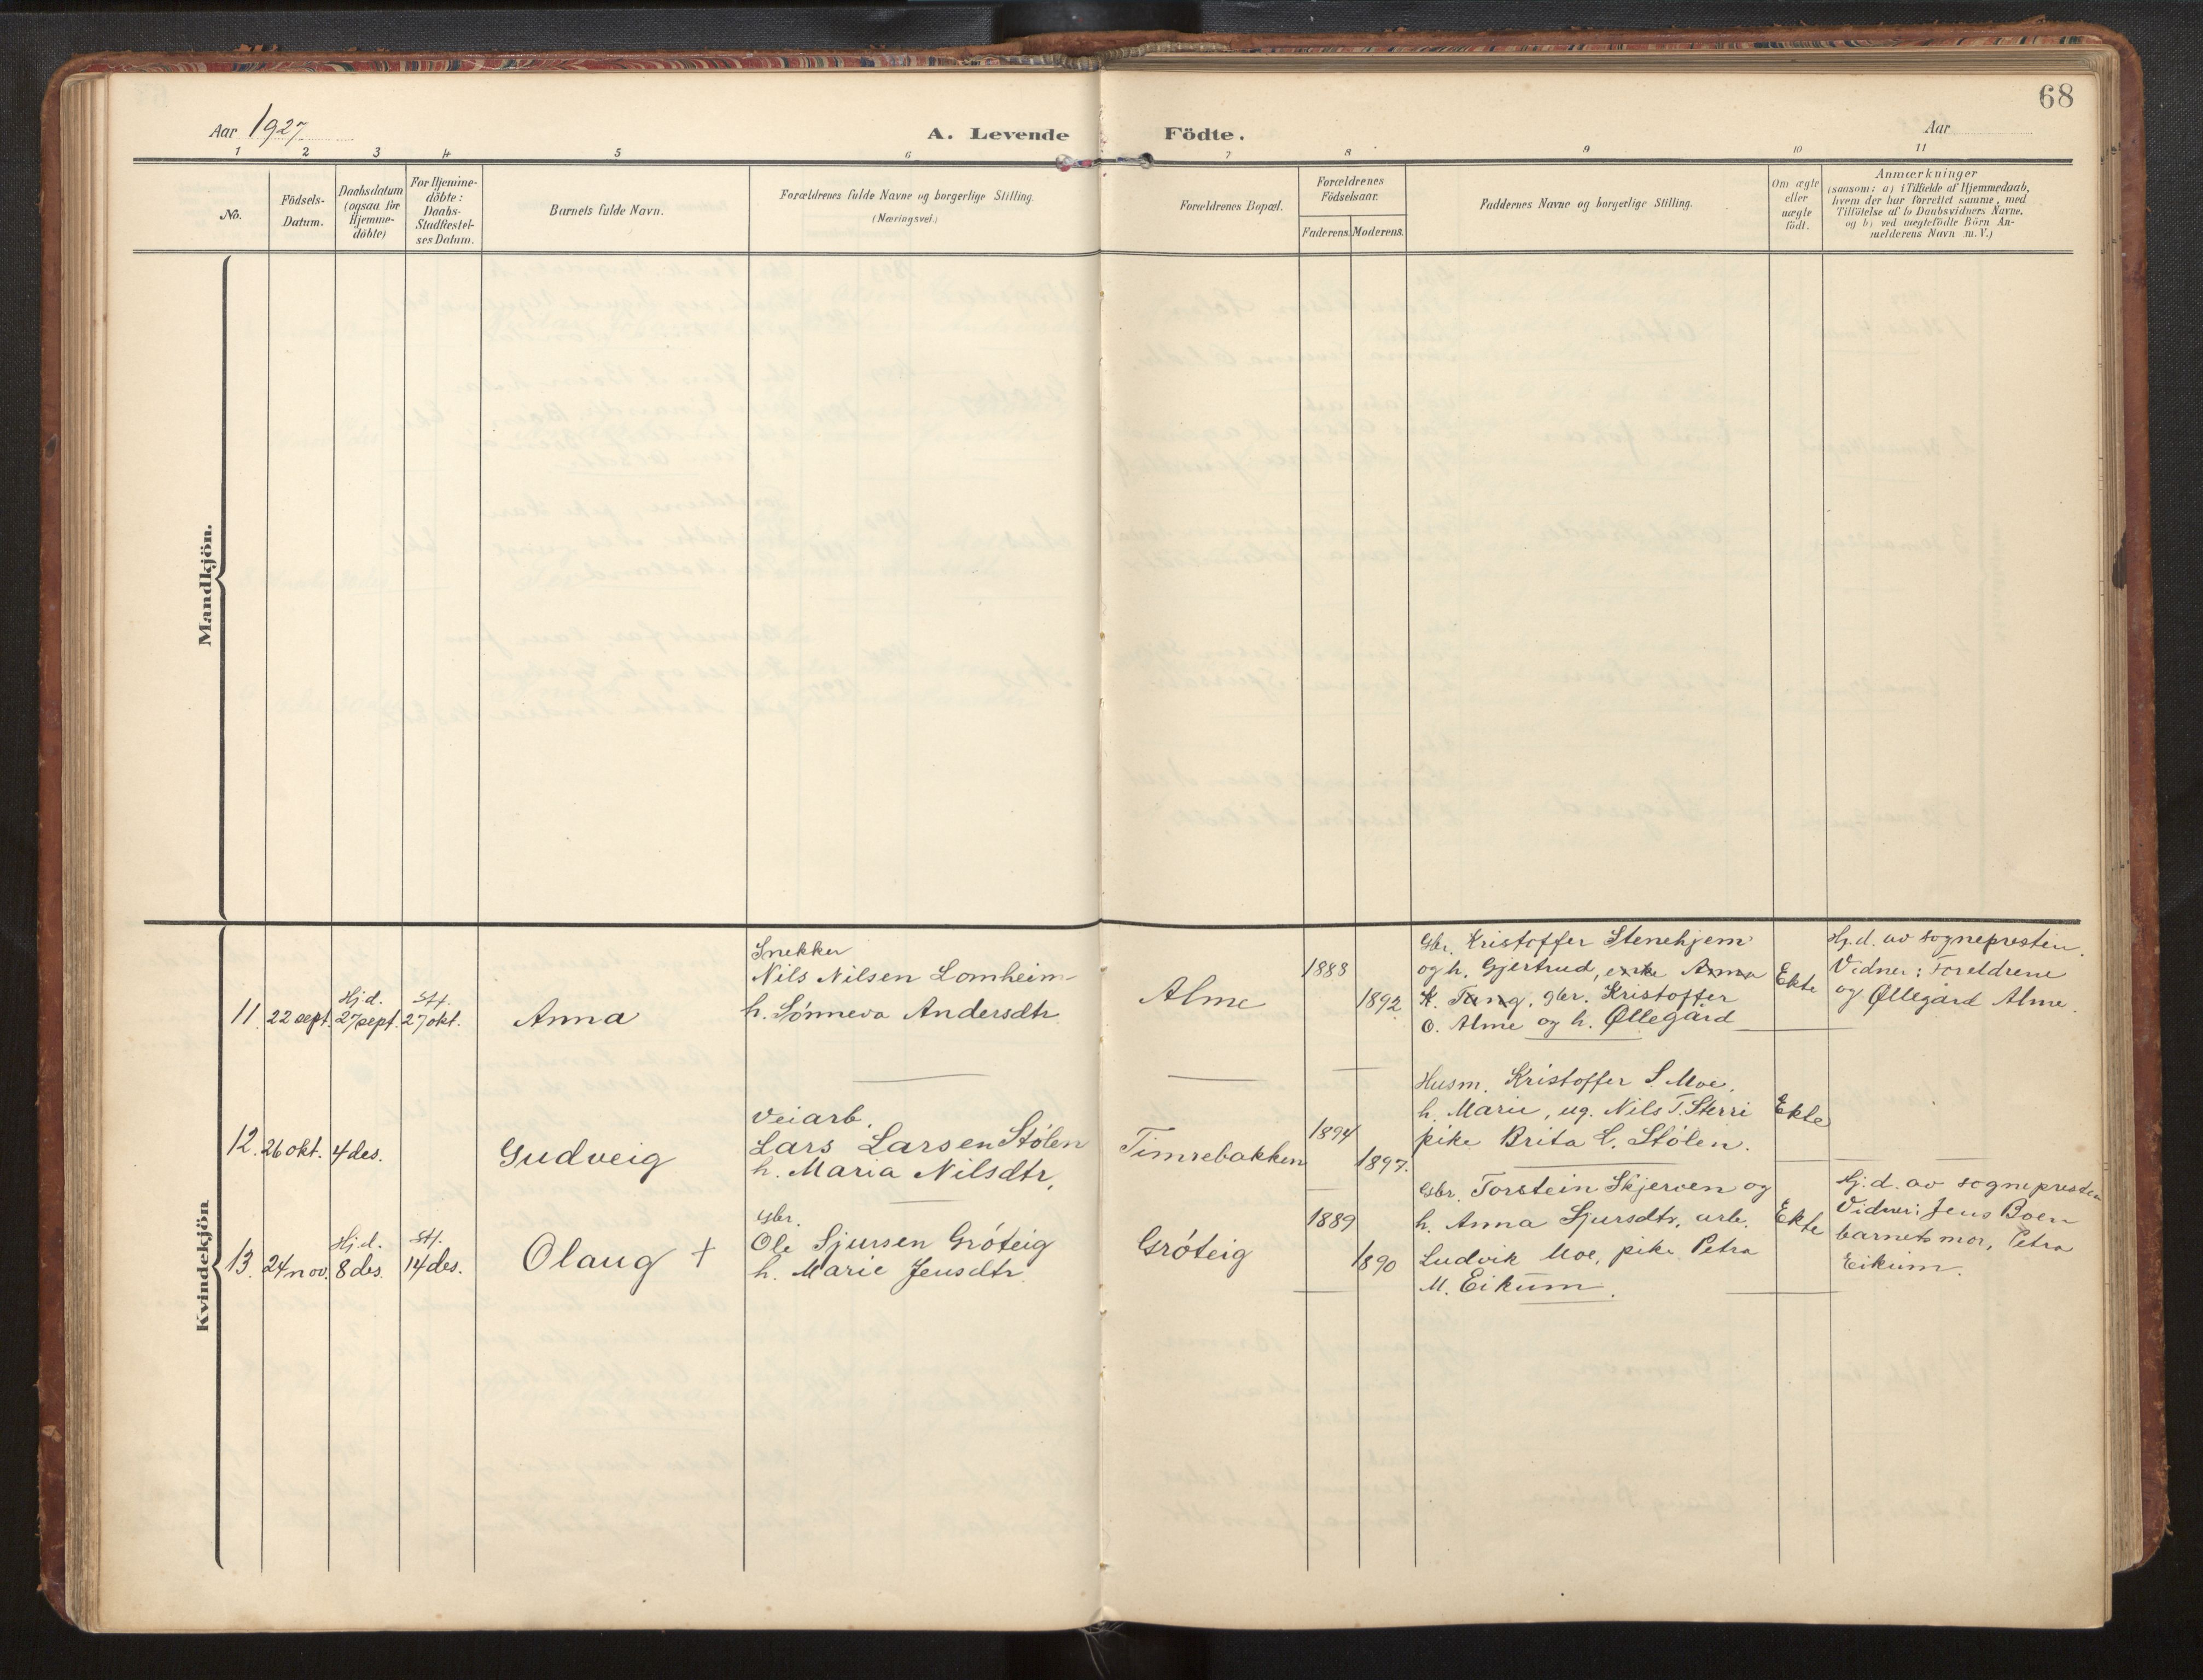 68
Aar 1927
A. Levende Födte.
Aar
1 2 3 4 5 6 7 8 9 10 11
No.
Födsels-
Datum.
Daabsdatum
(ogsaa for
Hjemme-
döbte)
For Hjemme-
döbte:
Daabs-
Stadfæstel-
ses Datum.
Barnets fulde Navn.
Forældrenes fulde Navne og borgerlige Stilling.
(Næringsvei.)
Forældrenes Bopæl.
Forældrenes
Födselsaar.
Faderens. Moderens.
Faddernes Navne og borgerlige Stilling.
Om ægte
eller
uægte
födt.
Anmærkninger
(saasom: a) i Tilfælde af Hjemmedaab,
hvem der har forrettet samme, med
Tilföielse af to Daabsvidners Navne.
og b) ved uægtefödte Börn An-
melderens Navn m. V.)
Mandkjön.
Kvindekjön
11. 22 sept.
Hj.d.
27 sept.
Stf.
27 okt.
Anna
Snekker
Nils Nilsen Lomheim
h. Sønneva Andersdtr
Alme
1888
1892
Gbr. Kristoffer Stenehjem
og h. Gjertrud, enke Anna
K. Tang, gbr. Kristoffer
O. Alme og h. Øllegård
Ekte
Hj.d. av sognepresten.
Vidner: Foreldrene
og Øllegård Alme.
12. 26 okt. 4 des.
Gudveig
Veiarb.
Lars Larsen Stølen
h. Maria Nilsdtr.
Timrebakken
1894
1897.
Husm. Kristoffer S. Moe,
h. Marie, ug. Nils T. Sterri
pike Brita L. Stølen.
Ekte
13. 24 nov.
Hj.d.
8 des.
Stf.
14 des.
Olaug +
Gbr.
Ole Sjursen Gróteig
h. Marie Jensdtr
Gróteig
1889
1890
Gbr. Torstein Skjerven og
h. Anna Sjursdtr, arb.
Ludvik Moe, pike Petra
M. Eikum.
Ekte
Hj.d. av sognepresten
Vidner: Jens Boen
barnets mor, Petra
Eikum.